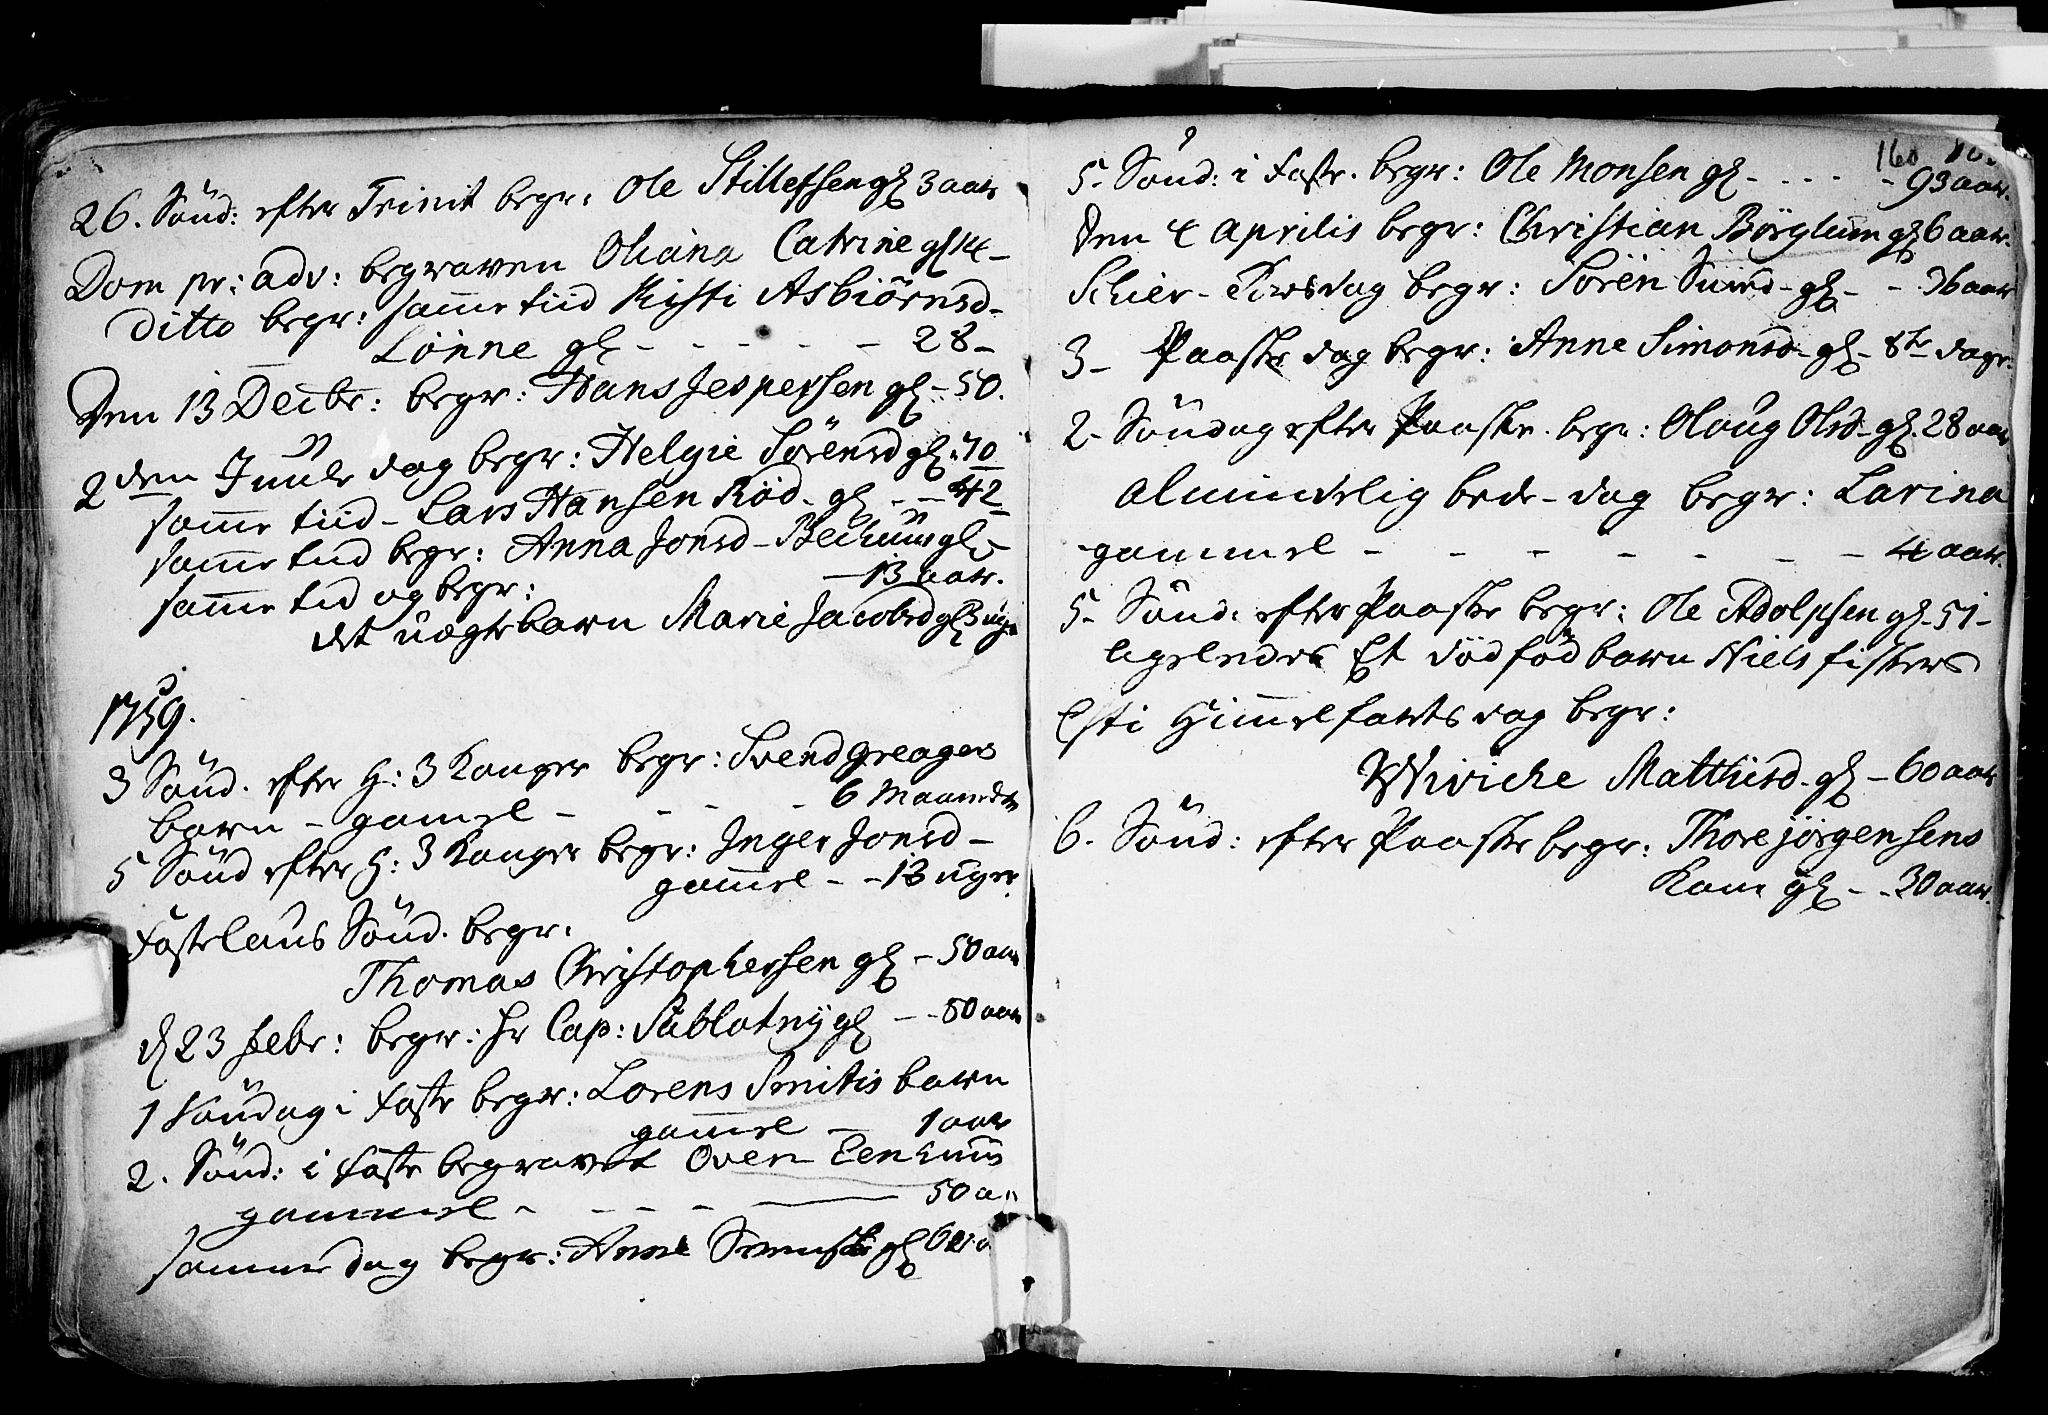 26. Sönd: efter Trinit begr: Ole Stillefsen gl 3 aar
Dom pr: adv: begraven Oliana Catrine gl 14 -
Ditto begr: samme tiid Kisti Asbiörnsd-
Lönne gl - - - - - 28 -
Den 13 Decbr: begr: Hans Jespersen gl - 50.
2den Juule dag begr: Helgie Sörensd gl. 70
samme tiid - Lars Hansen Röd - gl - - 42
samme tiid begr: Anna Jonsd - gl -
- 13 aar.
samme tid og begr:
det uægte barn Marie Jacobsd gl 3 uger
1759.
3 Sönd. efter H: 3 Konger begr: Svend Greagers
barn - gamel - - - - 6 Maaneder
5 Sönd efter H: 3 Konger begr: Inger Jonsd -
gamel - - 13 uger.
Fastelauns Sönd. begr:
Thomas Christophersen gl - 50 aar
d 23 Febr: begr: Hr Cap: Sublotny gl - - 80 aar
1 Söndag i Faste begr: Lorens Smitis barn
gamel - 1 aar
2. Sönd: i Faste begravet Oven Eenhuus
gammel - - - - 50 a
samme dag begr: Anne gl
160
5. Sönd: i Faste. begr: Ole Monsen gl - - - - 93 aar.
Den 4 Aprilis begr: Christian Börglum gl 6 aar.
Schier - Torsdag begr: Sören gl - - 36 aar
3 - Paaske dag begr: Anne Simonsd - gl - 8te dage.
2. Söndag efter Paaske. begr: Oloug Olsd - gl. 28 aar
Almindelig bede - dag begr: Larina
gammel - - - - - - - 4 aar.
5. Sönd: efter Paaske begr: Ole Adolphsen gl - 51 -
ligeledes Et död föd barn Niels fiskers
Chsti Himmelfarts dag begr:
Wiviche Matthisd - gl - 60 aar
6. Sönd: efter Paaske begr: Thore Jörgensens
Kone gl - - 30 aar.